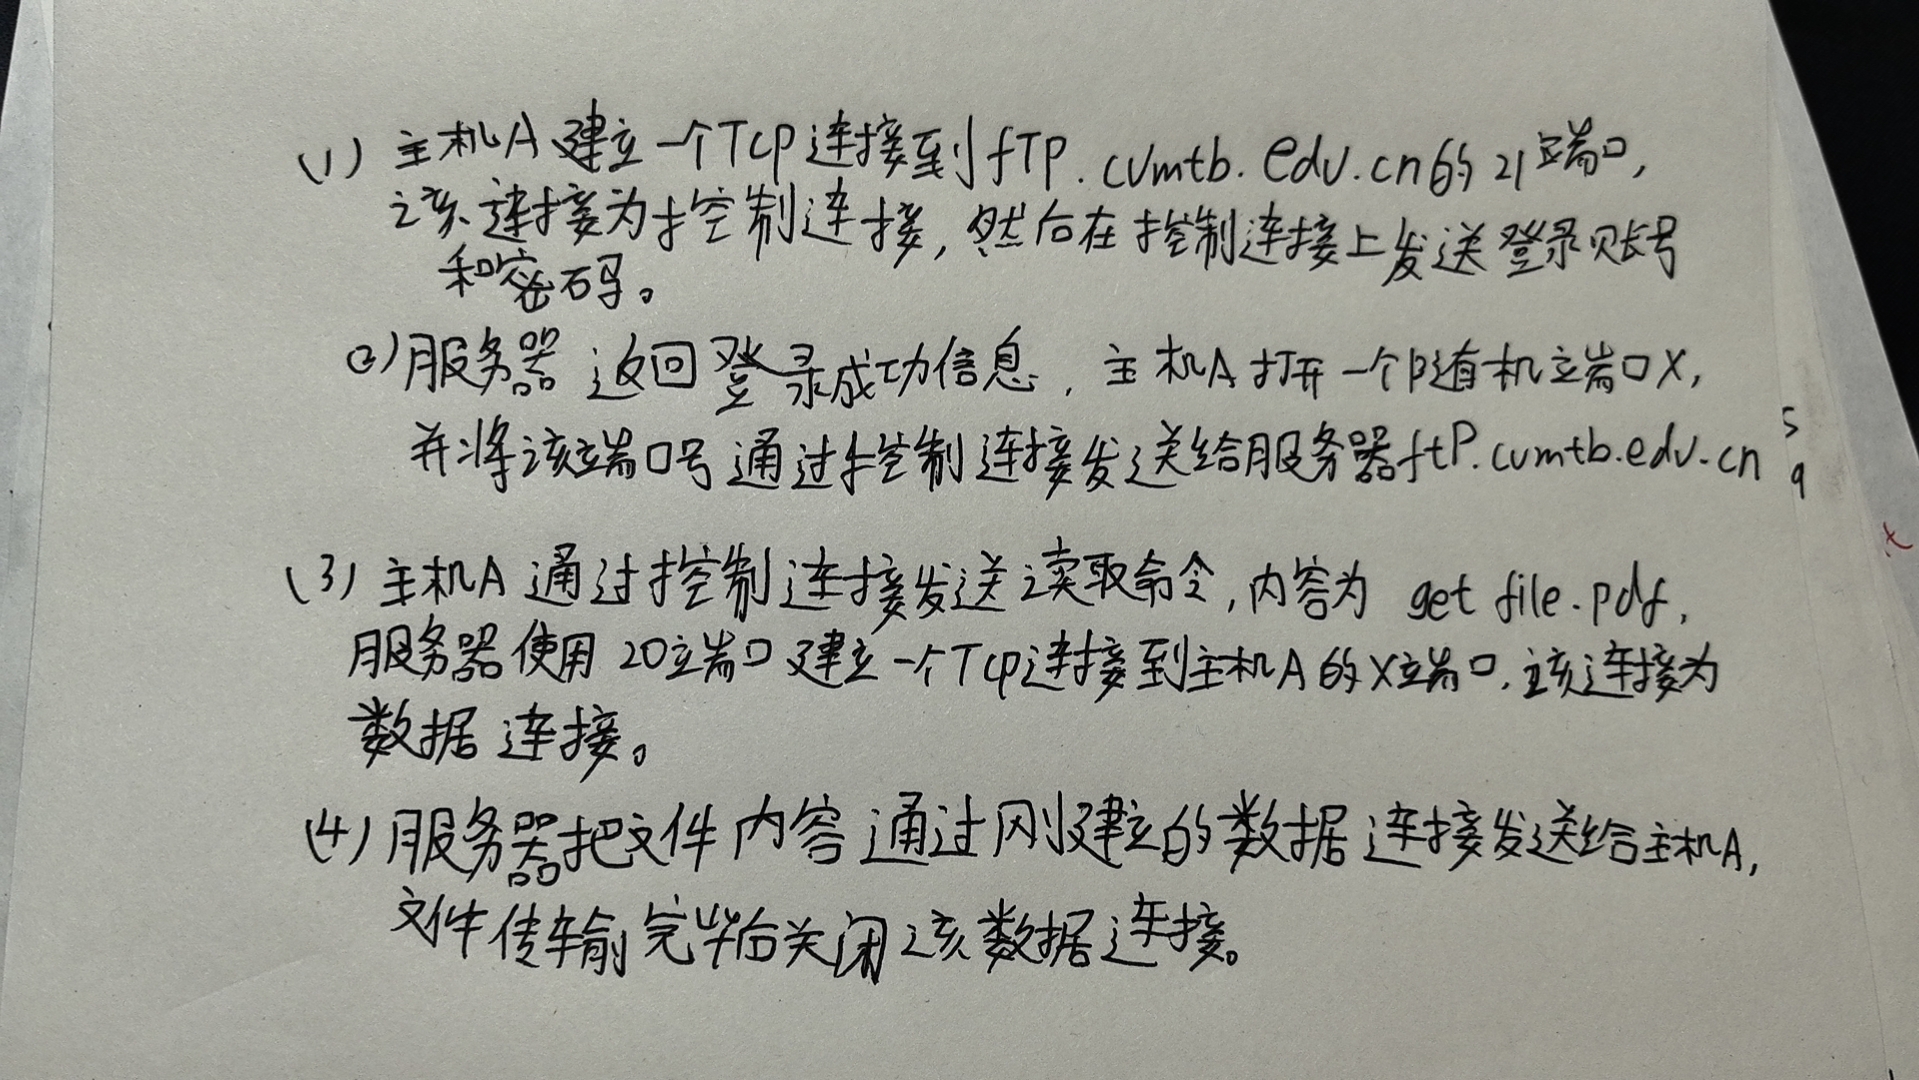 (1) 主机A建立一个Tcp连接到fTp.cumtb.edu.cn的21端口,
该连接为控制连接,然后在控制连接上发送登录账号
和密码。
(2)服务器返回登录成功信息,主机A打开一个随机端口X,
并将该端口号通过控制连接发送给服务器ftp.cumtb.edu.cn
(3)主机A通过控制连接发送读取命令,内容为 get file.pdf,
服务器使用20端口建立一个Tcp连接到主机A的X端口,该连接为
数据连接。
(4)服务器把文件内容通过刚建立的数据连接发送给主机A,
文件传输完毕后关闭该数据连接。